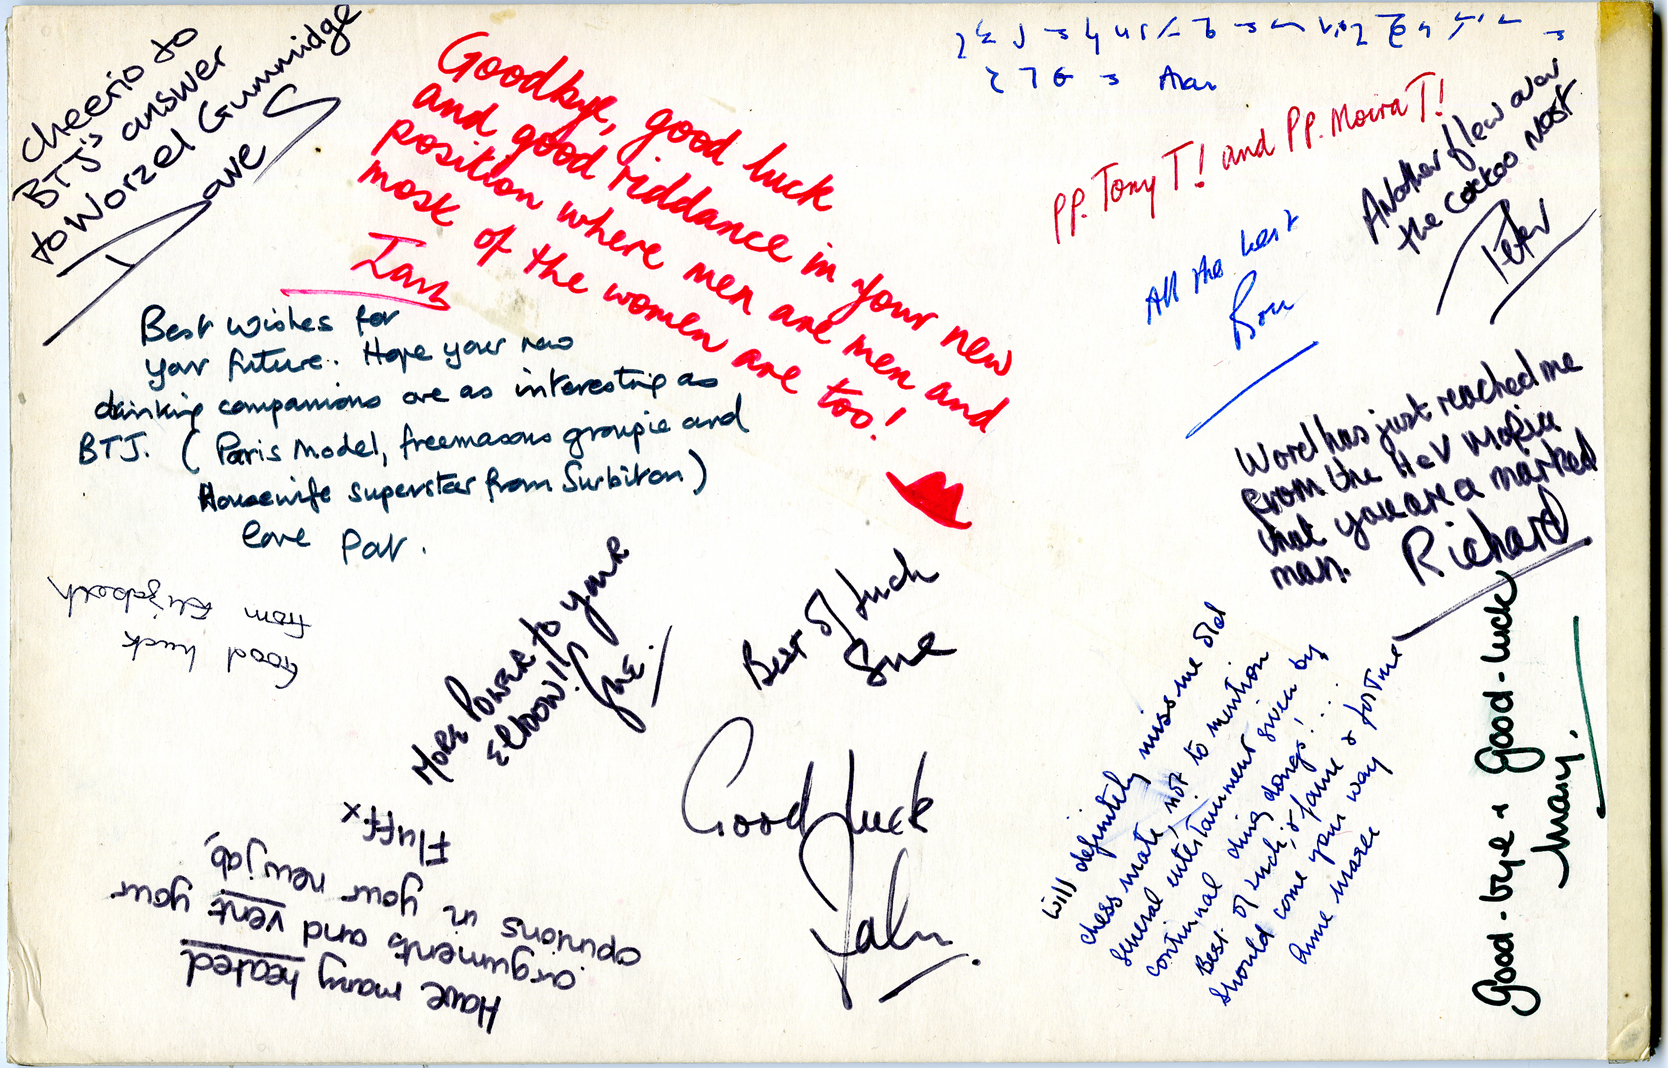 cheerio to
BTJ's answer
to Worzel Gummidge
Goodbye, good luck
and good riddance in your new
position where men are men and
most of the women are too!
Ian
pp. Tony T! and pp. Moira T!
Another flew over
the cockoo nest
Peter
All the best
Ron
Best wishes for
your future. Hope your new
drinking companions are as interesting as
BTJ. (Paris Model, freemasons groupie and
Housewife superstar from Surbiton)
love Pat.
Word has just reached me
from the H&V Mafia
that you are a marked
man. Richard
Good luck
from Elizabeth
More Power to your
Elbow!!
Sue.
Best of luck
Sue
Good luck
John.
will definitely miss me old
chess mate, not to mention
general entertainment given by
continual ding dongs!...
Best of luck, & fame & fortune
should come your way
Anne Maree
Good-bye & Good-luck
Mary.
Have many heated
arguments and vent your
opinions in your new job,
Fluff x